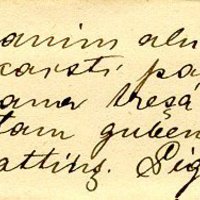 anim alu
karsti pa
ana treša
tam guber
atting. Pig